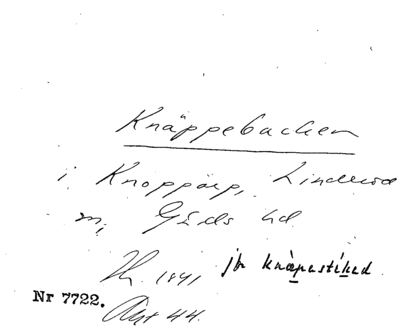 Knäppebacken
i Knopparp, Linderöd
m, Gärds hd
1841, jfr knäpastiked
Nr 7722. 44.